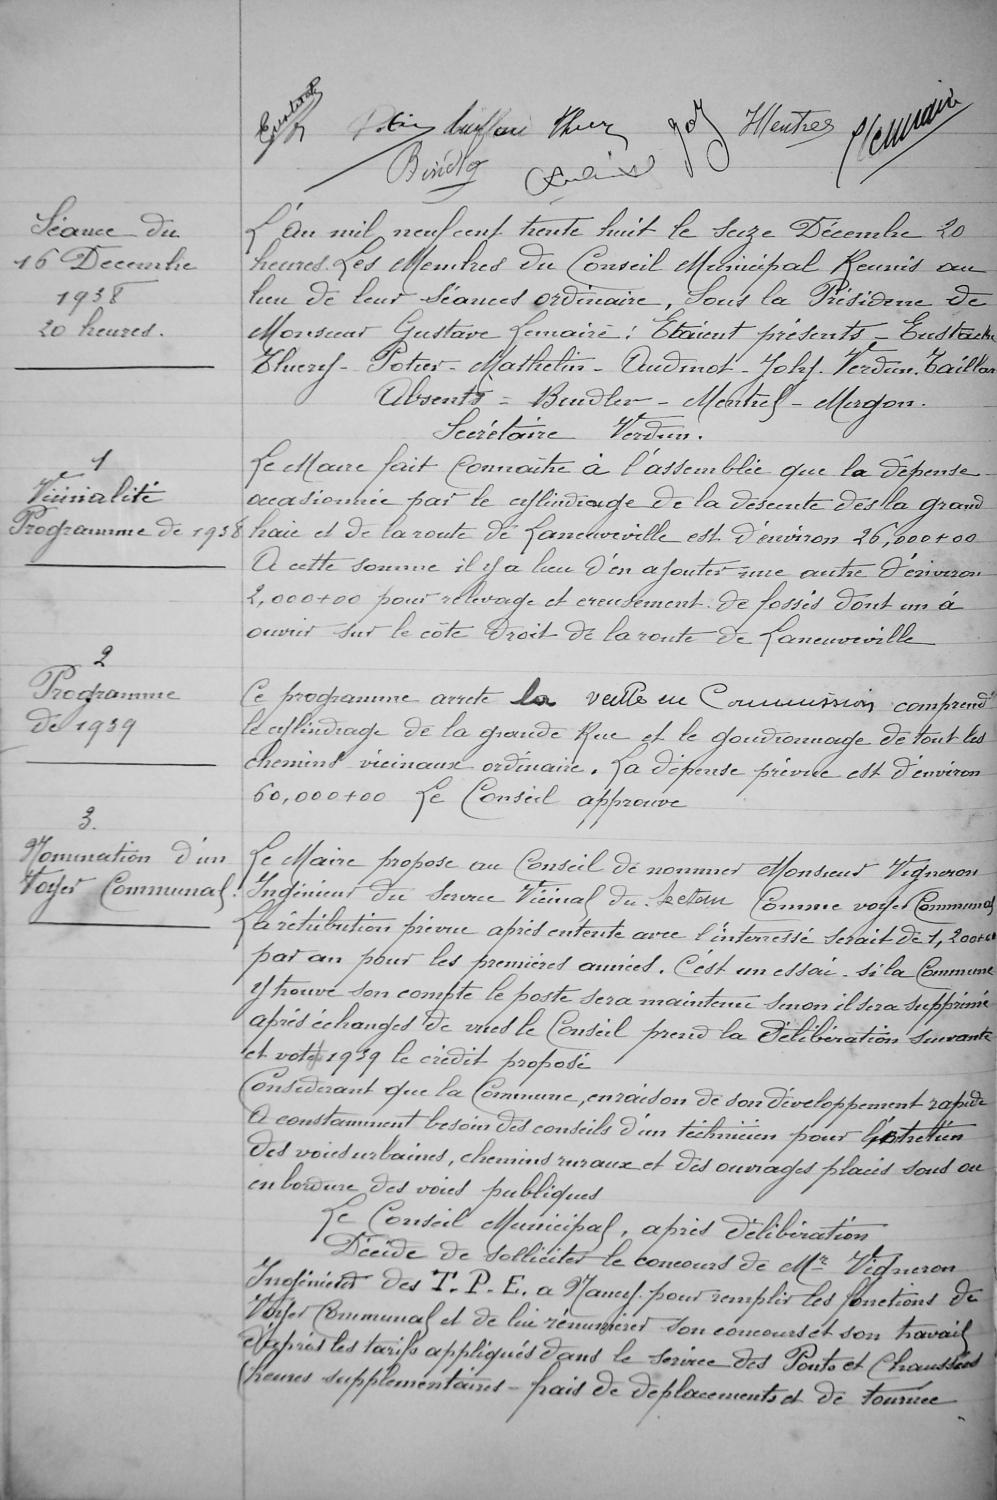 Mentrer
Lemaire
Séance du
16 Decembre
1938
20 heures.
L'An mil neuf cent trente huit le seize Décembre 20
heures. Les Membres du Conseil Municipal Reunis au
lieu de leur Séances ordinaire, Sous la Présidence de
Monsieur Gustave Lemaire : Etaient présents - Eustache
Thuery - Potier - Mathelin - Audinot - Joly. Verdun. Taillar
Absents = Bindler - Mentrel - Morgon.
Secrétaire Verdun.
1
Vicinalité
Programme de 1938
Le Maire fait Connaître à l'assemblée que la dépense
occasionnée par le cylindrage de la descente dès la grand
haie et de la route de Laneuveville est d'environ 26,000+00
A cette somme il y a lieu d'en ajouter une autre d'environ
2,000+00 pour relevage et creusement de fossés dont un à
ouvrir sur le côte droit de la route de Laneuveville
2
Programme
de 1939
Ce programme arrete la veille en Commission comprend
le cylindrage de la grande Rue et le goudronnage de tout les
chemins vicinaux ordinaire. La dépense prévue est d'environ
60,000+00 Le Conseil approuve
3.
Nomination d'un
Voyer Communal.
Le Maire propose au Conseil de nommer Monsieur Vigneron
Ingénieur du Service Vicinal du Comme voyer Communal
La rétribution prévue après entente avec l'interressé serait de 1,200+00
par an pour les premières années. C'est un essai - si la Commune
y trouve son compte le poste sera maintenu sinon il sera supprimé
après échanges de vues le Conseil prend la Délibération suivante
et vote 1939 le crédit proposé
Considerant que la Commune, en raison de son développement rapide
A constamment besoin des conseils d'un téchnicien pour l'entretien
des voies urbaines, chemins ruraux et des ouvrages placés sous ou
en bordure des voies publiques
Le Conseil Municipal, après délibération
Décide de solliciter le concours de Mr Vigneron
Ingénieur des T.P.E. a Nancy pour remplir les fonctions de
Voyer Communal et de lui rénumérer son concours et son travail
d'après les tarifs appliqués dans le service des Ponts et Chaussées
(heures supplémentaires - frais de deplacements et de tournée